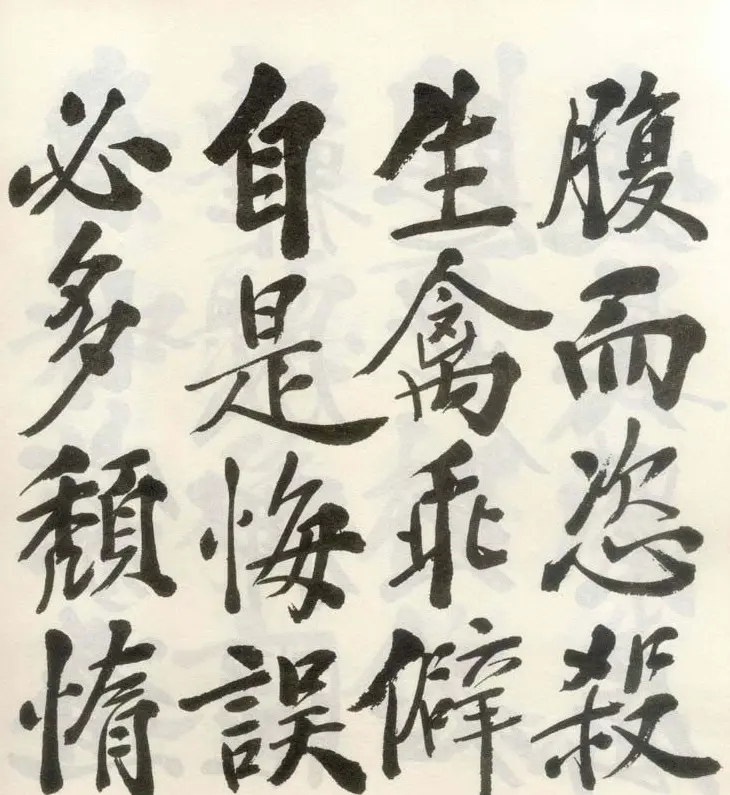 腹而恣殺
生禽乖僻
自是悔誤
必多頹惰